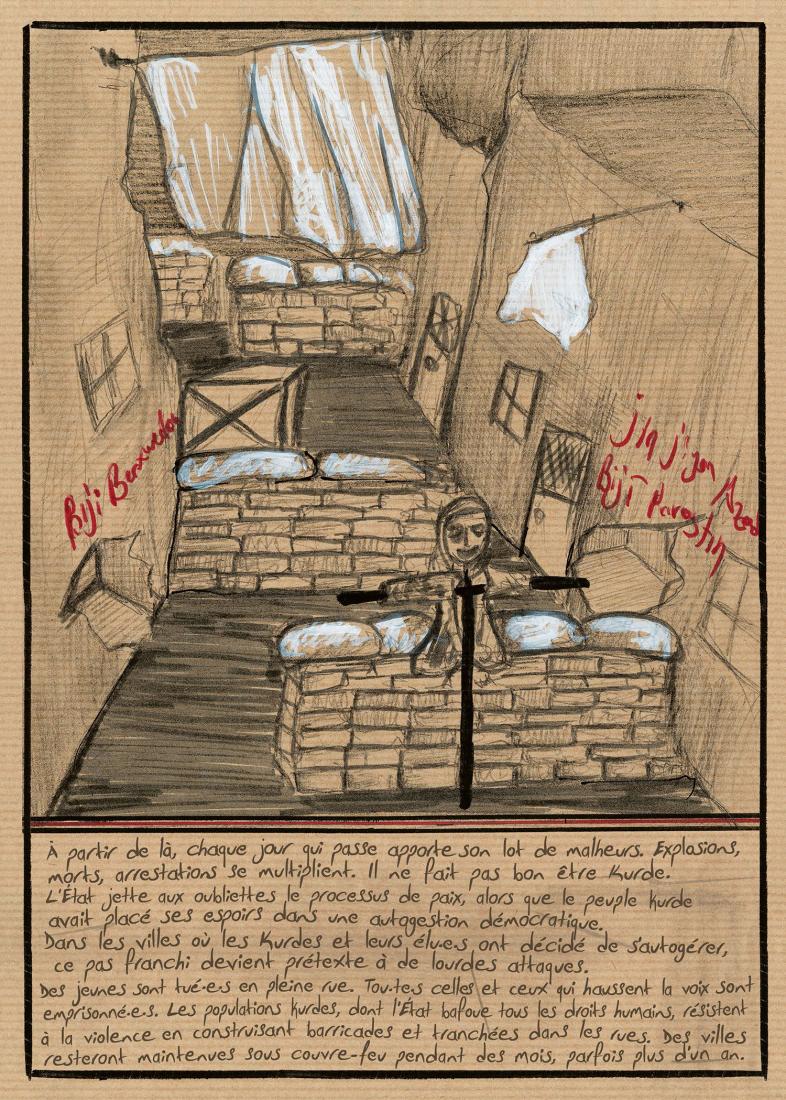 Bijî Berxwedan
Jin jiyan Azad
Bijî Parastin
À partir de là, chaque jour qui passe apporte son lot de malheurs. Explosions,
morts, arrestations se multiplient. Il ne fait pas bon être Kurde.
L'État jette aux oubliettes le processus de paix, alors que le peuple kurde
avait placé ses espoirs dans une autogestion démocratique.
Dans les villes où les Kurdes et leurs élu·e·s ont décidé de s'autogérer,
ce pas franchi devient prétexte à de lourdes attaques.
Des jeunes sont tué·e·s en pleine rue. Tou·te·s celles et ceux qui haussent la voix sont
emprisonné·e·s. Les populations kurdes, dont l'État bafoue tous les droits humains, résistent
à la violence en construisant barricades et tranchées dans les rues. Des villes
resteront maintenues sous couvre-feu pendant des mois, parfois plus d'un an.